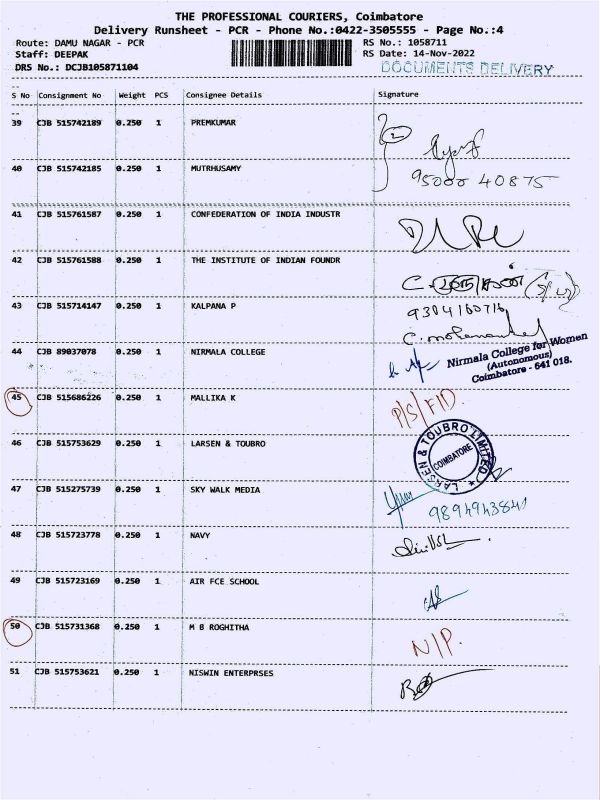 THE PROFESSIONAL COURIERS, Coimbatore
Delivery Runsheet - PCR - Phone No.:0422-3505555 - Page No.:4
Route: DAMU NAGAR - PCR RS No.: 1058711
Staff: DEEPAK RS Date: 14-Nov-2022
DRS No.: DCJB105871104 DOCUMENTS DELIVERY
S No Consignment No Weight PCS Consignee Details Signature
39 CJB 515742189 0.250 1 PREMKUMAR 2
40 CJB 515742185 0.250 1 MUTRHUSAMY 95000 40875
41 CJB 515761587 0.250 1 CONFEDERATION OF INDIA INDUSTR
42 CJB 515761588 0.250 1 THE INSTITUTE OF INDIAN FOUNDR
43 CJB 515714147 0.250 1 KALPANA P
44 CJB 89037078 0.250 1 NIRMALA COLLEGE
Nirmala College for Women
(Autonomous)
Coimbatore - 641 018.
45 CJB 515686226 0.250 1 MALLIKA K P/S/FID.
46 CJB 515753629 0.250 1 LARSEN & TOUBRO
LARSEN & TOUBRO LIMITED
COIMBATORE
47 CJB 515275739 0.250 1 SKY WALK MEDIA
48 CJB 515723778 0.250 1 NAVY
49 CJB 515723169 0.250 1 AIR FCE SCHOOL
50 CJB 515731368 0.250 1 M B ROGHITHA N/P.
51 CJB 515753621 0.250 1 NISWIN ENTERPRSES